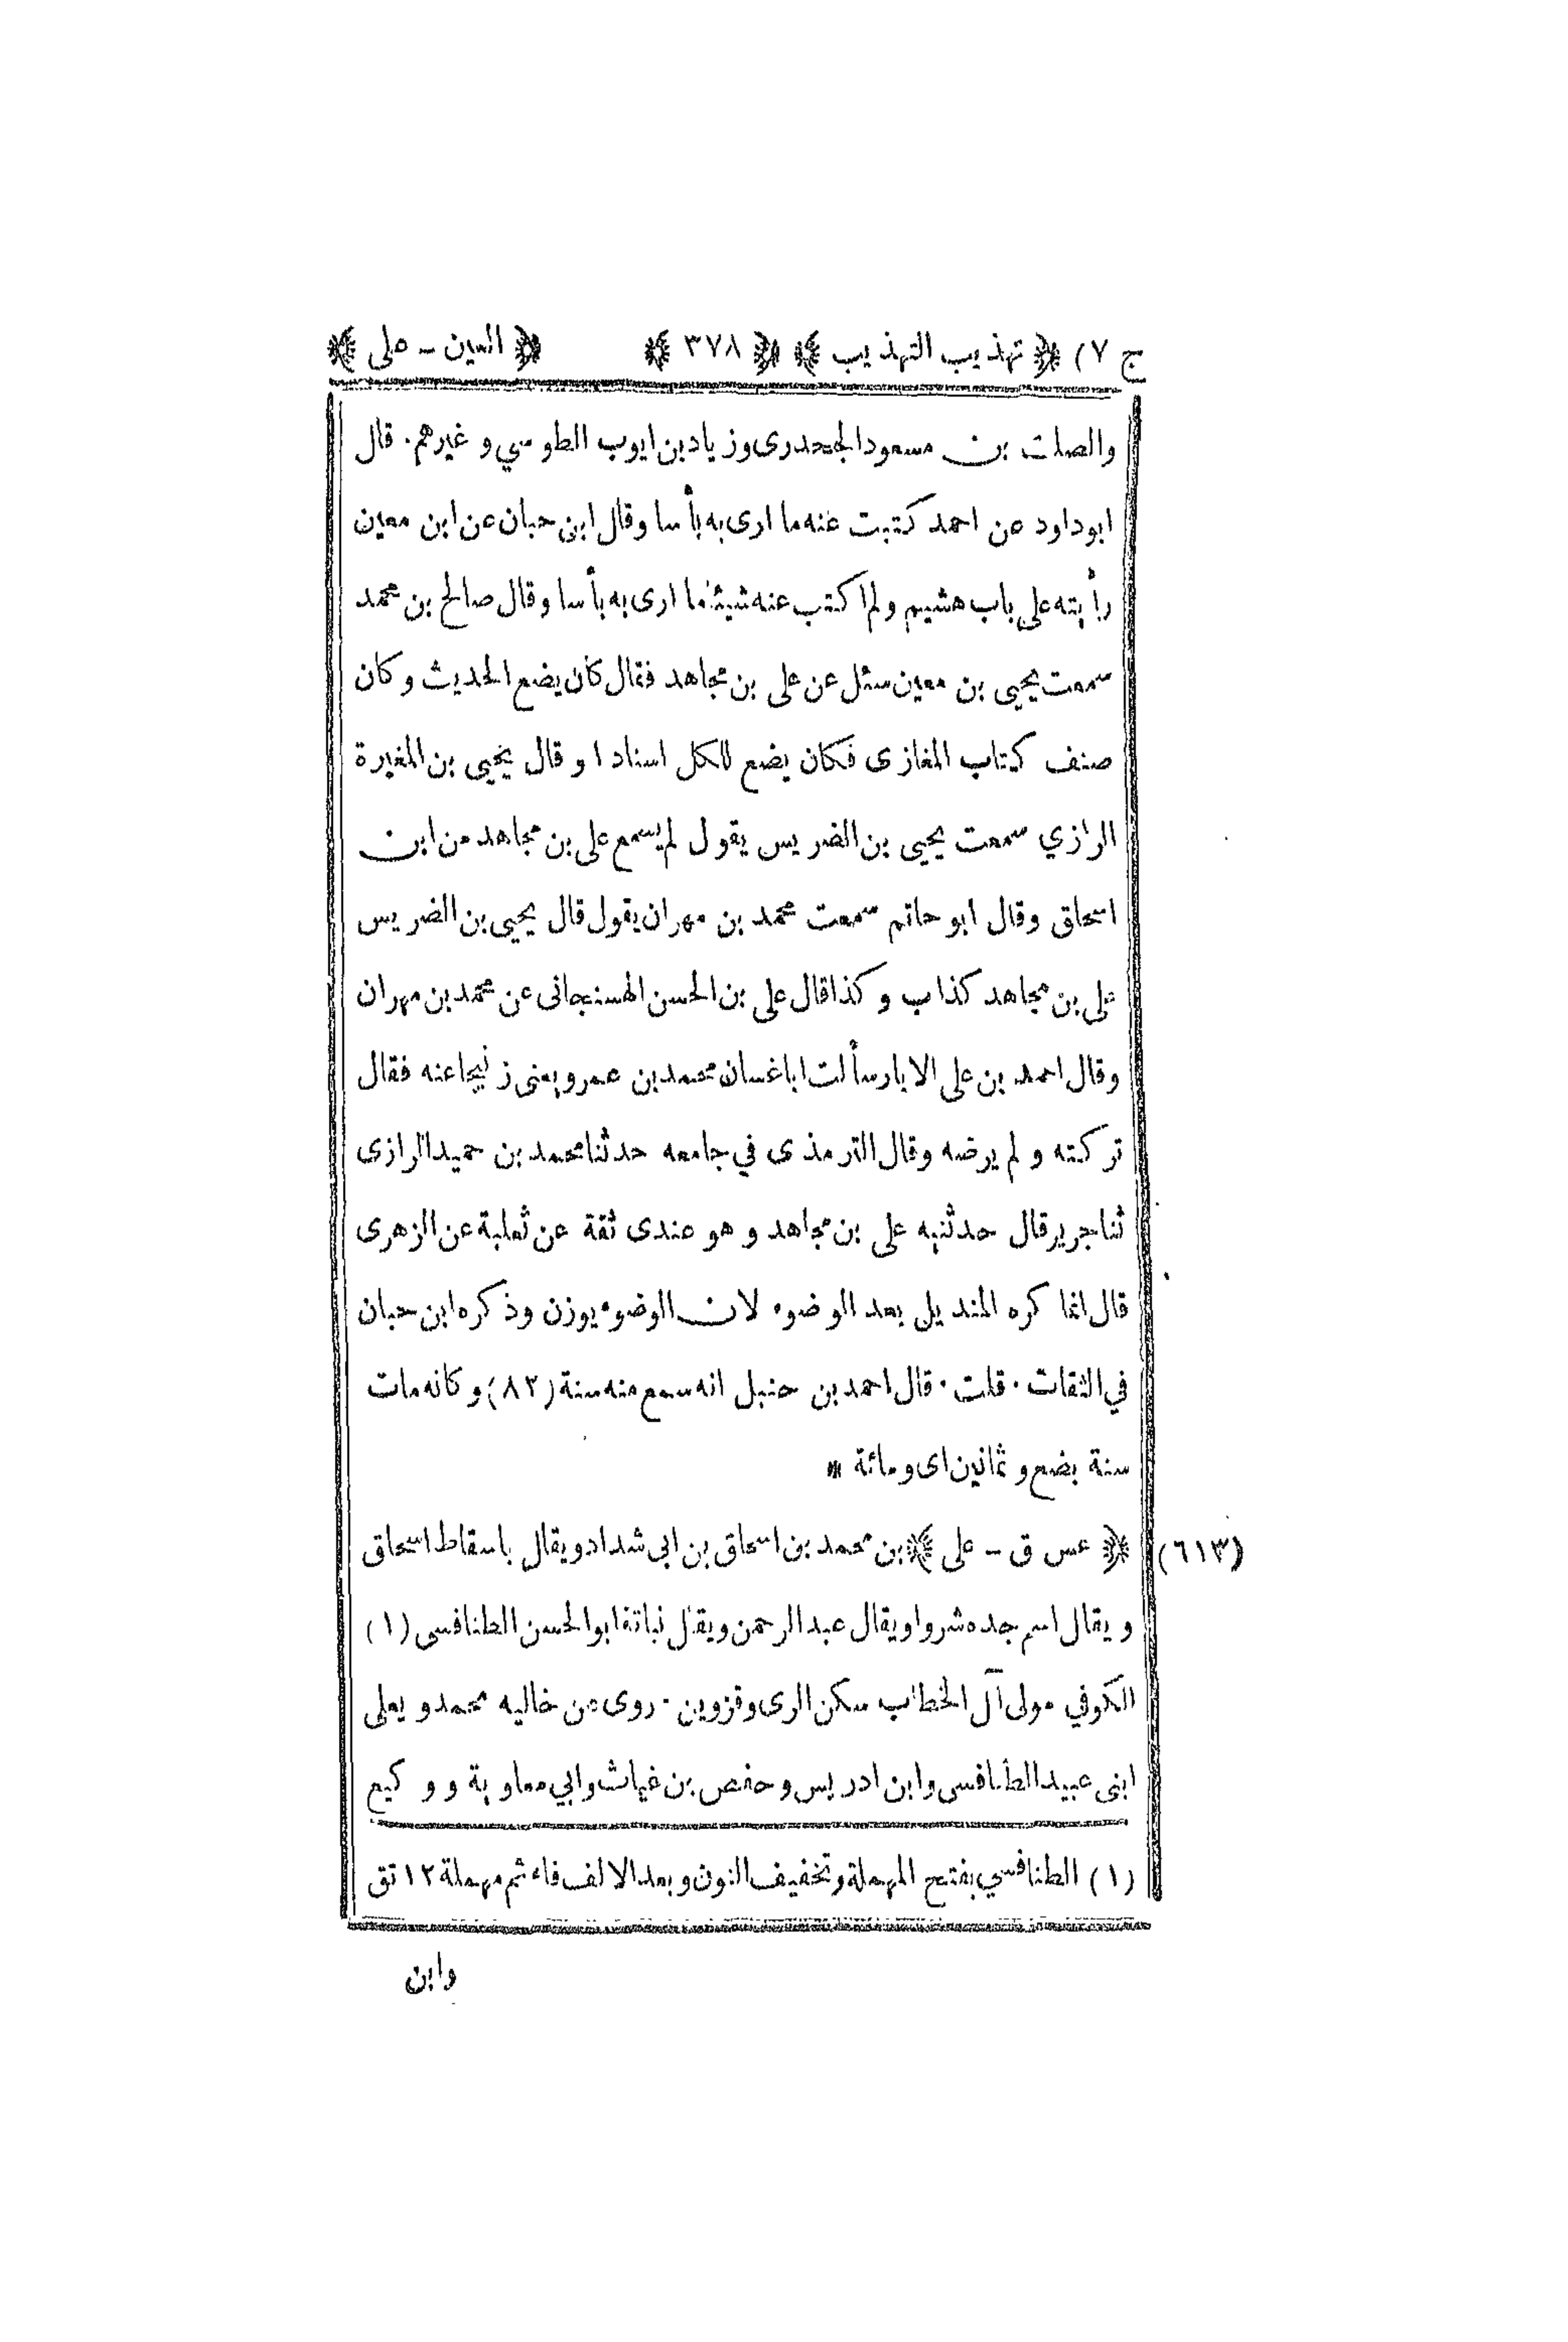 ج ٧) ﴿ تهذيب التهذيب ﴾ ﴿ ٣٧٨ ﴾ ﴿ العين - على ﴾
والصلت بن مسعود الجحدرى وزياد بن ايوب الطوسي وغيرهم. قال
ابوداود عن احمد كتبت عنه ما ارى به بأسا وقال ابن حبان عن ابن معين
رأيته على باب هشيم ولم اكتب عنه شيئا ما ارى به بأسا وقال صالح بن محمد
سمعت يحيى بن معين سئل عن على بن مجاهد فقال كان يضع الحديث وكان
صنف كتاب المغازى فكان يضع للكل اسنادا وقال يحيى بن المغيرة
الرازي سمعت يحيى بن الضريس يقول لم يسمع على بن مجاهد من ابن
اسحاق وقال ابو حاتم سمعت محمد بن مهران يقول قال يحيى بن الضريس
على بن مجاهد كذاب وكذا قال على بن الحسن الهسنجانى عن محمد بن مهران
وقال احمد بن على الابار سألت اباغسان محمد بن عمرو يعنى زنيجا عنه فقال
تركته ولم يرضه وقال الترمذى في جامعه حدثنا محمد بن حميد الرازى
ثنا جرير قال حدثنيه على بن مجاهد وهو عندى ثقة عن ثعلبة عن الزهرى
قال انما كره المنديل بعد الوضوء لان الوضوء يوزن وذكره ابن حبان
في الثقات. قلت. قال احمد بن حنبل انه سمع منه سنة (٨٢) وكانه مات
سنة بضع وثمانين اى ومائة *
(٦١٣) ﴿ عس ق - على ﴾ بن محمد بن اسحاق بن ابى شداد ويقال باسقاط اسحاق
ويقال اسم جده شروا ويقال عبد الرحمن ويقال نباتة ابوالحسن الطنافسى (١)
الكوفي مولى آل الخطاب سكن الرى وقزوين. روى عن خاليه محمد ويعلى
ابنى عبيد الطنافسى وابن ادريس وحفص بن غياث وابي معاوية ووكيع
(١) الطنافسي بفتح المهملة وتخفيف النون وبعد الالف فاء ثم مهملة ١٢ تق
وابن